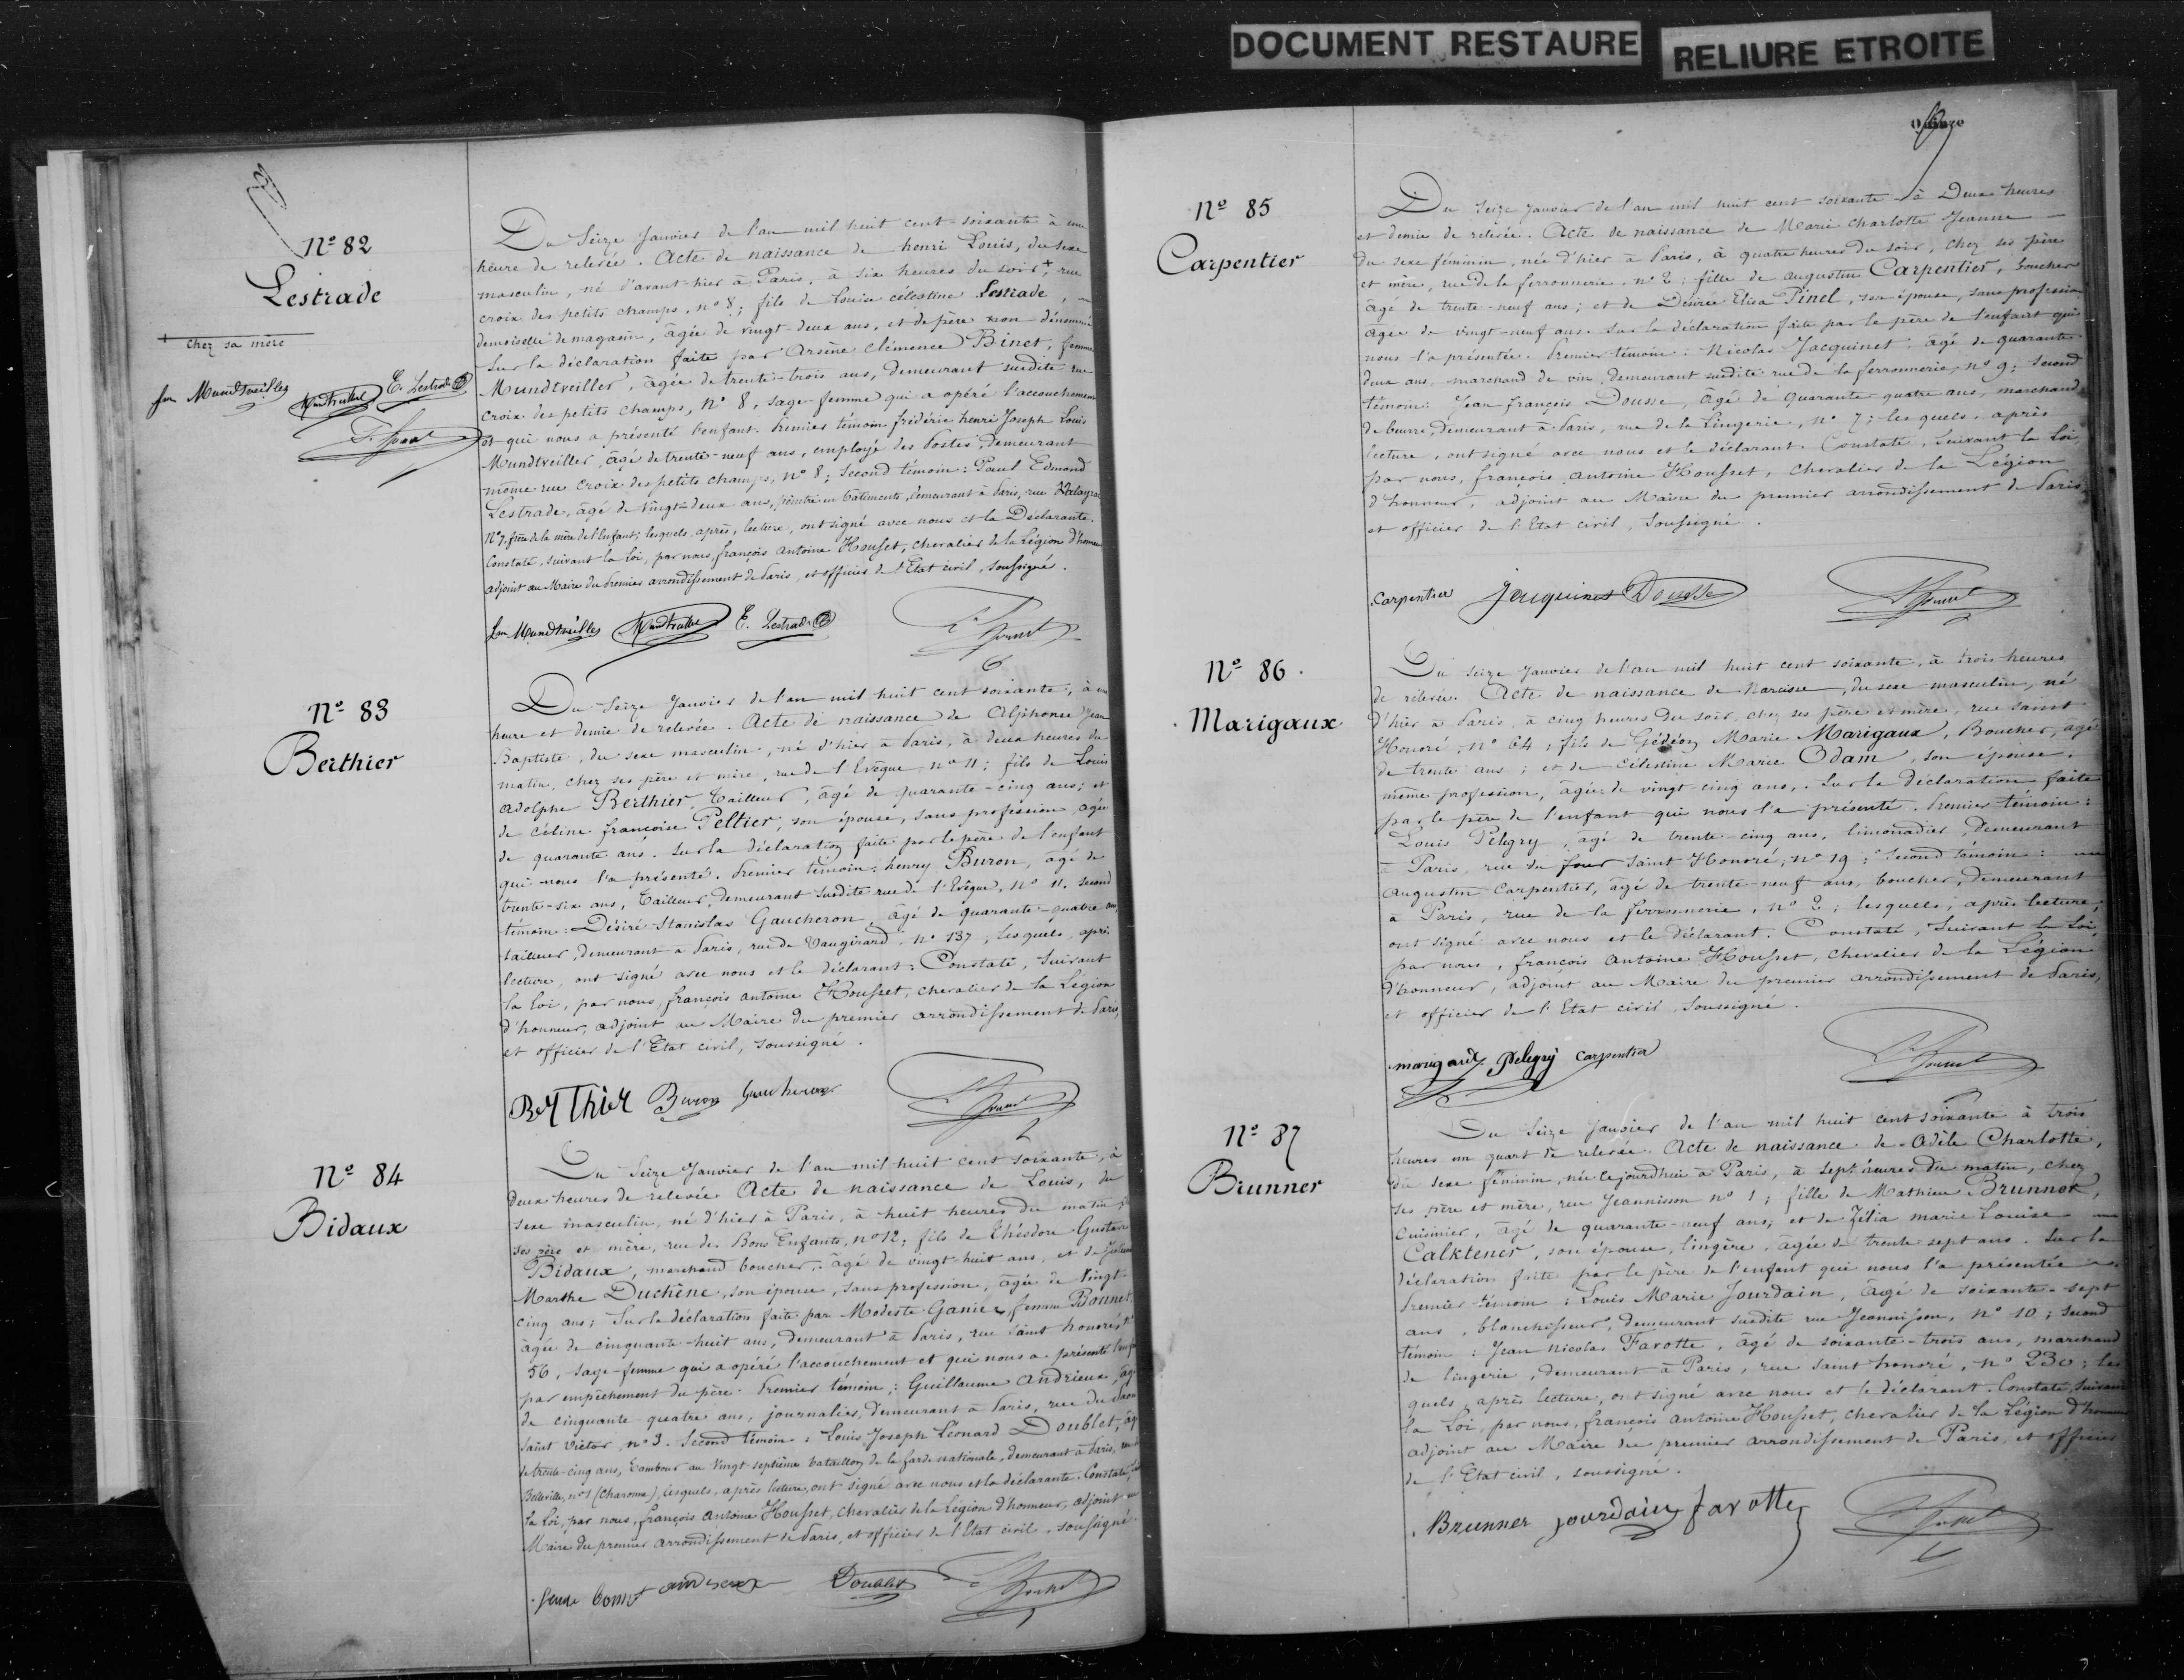 DOCUMENT RESTAURE
RELIURE ETROITE
Nº 82
Lestrade
+ chez sa mère
fem Mundtweiller E. Lestrade
Du Seize Janvier de l'an mil huit cent soixante à une
heure de relevée. Acte de naissance de henri Louis, du sexe
masculin, né d'avant-hier à Paris, à six heures du soir +, rue
croix des petits champs, nº 8; fils de Louise célestine Lestrade,
demoiselle de magasin, âgée de vingt-deux ans, et de père non dénommé
Sur la déclaration faite par Arsène Clémence Binet, femme
Mundtveiller, âgée de trente-trois ans, demeurant susdite rue
croix des petits champs, Nº 8, sage-femme qui a opéré l'accouchement
et qui nous a présenté l'enfant. Premier témoin frédéric henri Joseph Louis
Mundtveiller, âgé de trente-neuf ans, employé des Postes, demeurant
même rue croix des petits champs, nº 8; Second témoin: Paul Edmond
Lestrade, âgé de vingt-deux ans, peintre en bâtiments, demeurant à Paris, rue Dalayrac
Nº 7, frère de la mère de l'Enfant; lesquels, après, lecture, ont signé avec nous et la Déclarante.
Constaté, suivant la loi, par nous, françois antoine Housset, chevalier de la Légion d'honneur
adjoint au Maire du Premier arrondissement de Paris, et officier de l'Etat civil, soussigné.
fem Mundtweiller E. Lestrade
Nº 83
Berthier
Du Seize Janvier de l'an mil huit cent soixante, à une
heure et demie de relevée. Acte de naissance de Alphonse Jean
Baptiste, du sexe masculin, né d'hier à Paris, à deux heures du
matin, chez ses père et mère, rue de l'Evêque nº 11; fils de Louis
Adolphe Berthier, Tailleur, âgé de quarante-cinq ans; et
de Céline françoise Peltier, son épouse, sans profession, âgée
de quarante ans. Sur la déclaration faite par le père de l'enfant
qui nous l'a présenté. Premier témoin: henry Buron, âgé de
trente-six ans, Tailleur, demeurant susdite rue de l'Evêque, Nº 11. second
témoin: Désiré Stanislas Gaucheron, âgé de quarante-quatre ans,
tailleur, demeurant à Paris, rue de Vaugirard, nº 137, Lesquels, après
lecture, ont signé avec nous et le déclarant: Constaté, Suivant
la loi, par nous, françois antoine Housset, chevalier de la Légion
d'honneur, adjoint au Maire du premier arrondissement de Paris,
et officier de l'Etat civil, soussigné.
Berthier Buron Gaucheron
Nº 84
Bidaux
Du Seize Janvier de l'an mil huit cent soixante, à
deux heures de relevée Acte de naissance de Louis, du
sexe masculin, né d'hier à Paris, à huit heures du matin,
ses père et mère, rue des Bons Enfants, nº 12; fils de Théodore Gustave
Bidaux, marchand boucher, âgé de vingt-huit ans, et de
Marthe Duchêne, son épouse, sans profession, âgée de Vingt-
cinq ans; Sur la déclaration faite par Modeste Ganier, femme Bonnet,
âgée de cinquante-huit ans, demeurant à Paris, rue Saint honoré, nº
56, sage-femme qui a opéré l'accouchement et qui nous a présenté l'enfant
par empêchement du père. Premier témoin: Guillaume Andrieux, âgé
de cinquante quatre ans, journalier, demeurant à Paris, rue du
Saint Victor, nº 3. Second témoin: Louis Joseph Léonard Doublet, âgé
de trente-cinq ans, Tambour au Vingt septième bataillon de la Garde nationale, demeurant à Paris, rue de
Belleville, nº 1 (Charonne), lesquels, après lecture, ont signé avec nous et la déclarante. Constaté,
la loi, par nous, françois antoine Housset, chevalier de la Légion d'honneur, adjoint au
Maire du premier arrondissement de Paris, et officier de l'Etat civil, soussigné.
Doublet
Quinze
Nº 85
Carpentier
Du Seize Janvier de l'an mil huit cent soixante à Deux heures
et demie de relevée. Acte de naissance de Marie Charlotte Jeanne
du sexe féminin, née d'hier à Paris, à quatre heures du soir, chez ses père
et mère, rue de la ferronnerie, nº 2; fille de augustin Carpentier, boucher
âgé de trente-neuf ans; et de Désirée Elisa Pinel, son épouse, sans profession
âgée de vingt-neuf ans. Sur la déclaration faite par le père de l'enfant qui
nous l'a présentée. Premier témoin: Nicolas Jacquinet, âgé de quarante
deux ans, marchand de vin, demeurant susdite rue de la ferronnerie, nº 9; Second
témoin: Jean françois Dousse, âgé de quarante quatre ans, marchand
de beurre, demeurant à Paris, rue de la Lingerie, nº 7; les quels, après
lecture, ont signé avec nous et le déclarant. Constaté, Suivant la Loi,
par nous, françois antoine Housset, chevalier de la Légion
d'honneur, adjoint au Maire du premier arrondissement de Paris,
et officier de l'Etat civil, soussigné.
Carpentier Jacquinet Dousse
Nº 86
Marigaux
Du seize Janvier de l'an mil huit cent soixante, à trois heures
de relevée. Acte de naissance de Narcisse, du sexe masculin, né
d'hier à Paris, à cinq heures du soir, chez ses père et mère, rue saint
Honoré, nº 64; fils de Gédéon Marie Marigaux, Boucher, âgé
de trente ans; et de Célestine Marie Odam, son épouse,
même profession, âgée de vingt-cinq ans. Sur la déclaration faite
par le père de l'enfant qui nous l'a présenté. Premier témoin:
Louis Pélegry, âgé de trente-cinq ans, limonadier, demeurant
à Paris, rue du four Saint Honoré, nº 19; Second témoin:
Augustin Carpentier, âgé de trente-neuf ans, boucher, demeurant
à Paris, rue de la ferronnerie, nº 2; lesquels, après lecture,
ont signé avec nous et le déclarant. Constaté, Suivant la Loi,
par nous, françois antoine Housset, chevalier de la Légion
d'honneur, adjoint au Maire du premier arrondissement de Paris,
et officier de l'Etat civil, Soussigné.
marigaux Pelegry Carpentier
Nº 87
Brunner
Du Seize Janvier de l'an mil huit cent soixante à trois
heures un quart de relevée. Acte de naissance de Adèle Charlotte,
du sexe féminin, née cejourd'hui à Paris, à sept heures du matin, chez
ses père et mère, rue Jeannisson nº 1; fille de Mathieu Brunner,
cuisinier, âgé de quarante-neuf ans, et de Zélia marie Louise
Calktener, son épouse, lingère, âgée de trente-sept ans. Sur la
déclaration faite par le père de l'enfant qui nous l'a présentée.
Premier témoin: Louis Marie Jourdain, âgé de soixante-sept
ans, blanchisseur, demeurant susdite rue Jeannisson, nº 10; second
témoin: Jean Nicolas Favotte, âgé de soixante-trois ans, marchand
de lingerie, demeurant à Paris, rue saint honoré, nº 230; les
quels, après lecture, ont signé avec nous et le déclarant. Constaté, Suivant
la Loi, par nous, françois antoine Housset, chevalier de la Légion d'honneur
adjoint au Maire du premier arrondissement de Paris, et officier
de l'Etat civil, soussigné.
Brunner Jourdain favotte